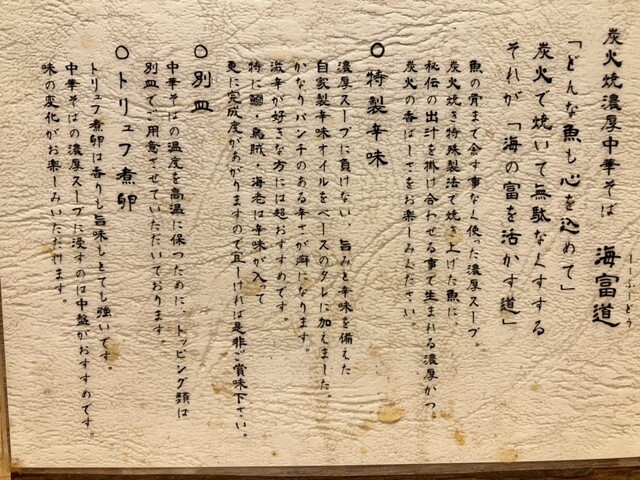 炭火焼濃厚中華そば 海富道
しーふーどう
「どんな魚も心を込めて」
炭火で焼いて無駄なくする
それが「海の富を活かす道」
魚の骨まで余す事なく使った濃厚スープ。
炭火焼き特殊製法で焼き上げた魚に、
秘伝の出汁を掛け合わせる事で生まれる濃厚かつ、
炭火の香ばしさをお楽しみください。
○特製辛味
濃厚スープに負けない、旨みと辛味を備えた
自家製辛味オイルをベースのタレに加えました。
かなりパンチのある辛さが癖になります。
激辛が好きな方には超おすすめです。
特に鯛・烏賊・海老は辛味が入って
更に完成度があがりますので宜しければ是非ご賞味下さい。
○別皿
中華そばの温度を高温に保つために、トッピング類は
別皿でご用意させていただいております。
○トリュフ煮卵
トリュフ煮卵は香りも旨味もとても強いです。
中華そばの濃厚スープに浸すのは中盤がおすすめです。
味の変化がお楽しみいただけます。